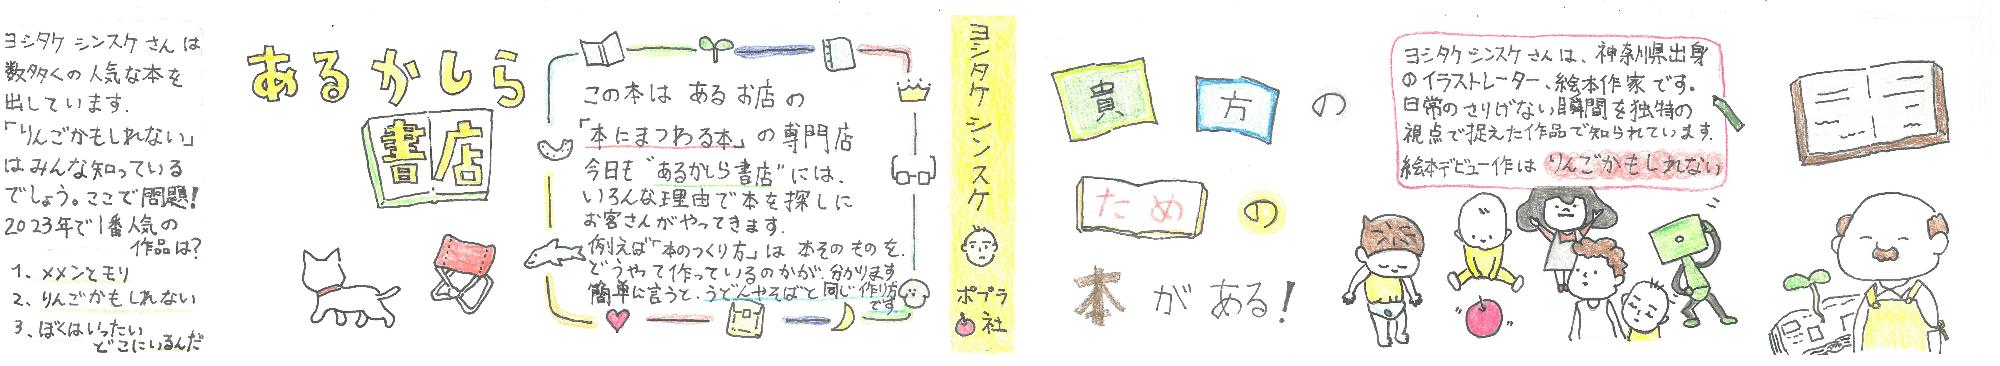 ヨシタケ シンスケ さんは
数多くの人気な本を
出しています.
「りんごかもしれない」
はみんな知っている
でしょう。ここで問題!
2023年で1番人気の
作品は?
1、メメンとモリ
2、りんごかもしれない
3、ぼくはいったい
どこにいるんだ
あるかしら
書店
この本は あるお店の
「本にまつわる本」の専門店
今日も“あるかしら書店”には、
いろんな理由で本を探しに
お客さんがやってきます.
例えば「本のつくり方」は 本そのものを.
どうやって作っているのかが.分かります
簡単に言うと、うどんやそばと同じ作り方
です
ヨシタケ シンスケ
ポプラ
社
貴方の
ための
本がある!
ヨシタケ シンスケさんは、神奈川県出身
のイラストレーター、絵本作家です。
日常のさりげない瞬間を独特の
視点で捉えた作品で知られています.
絵本デビュー作は りんごかもしれない